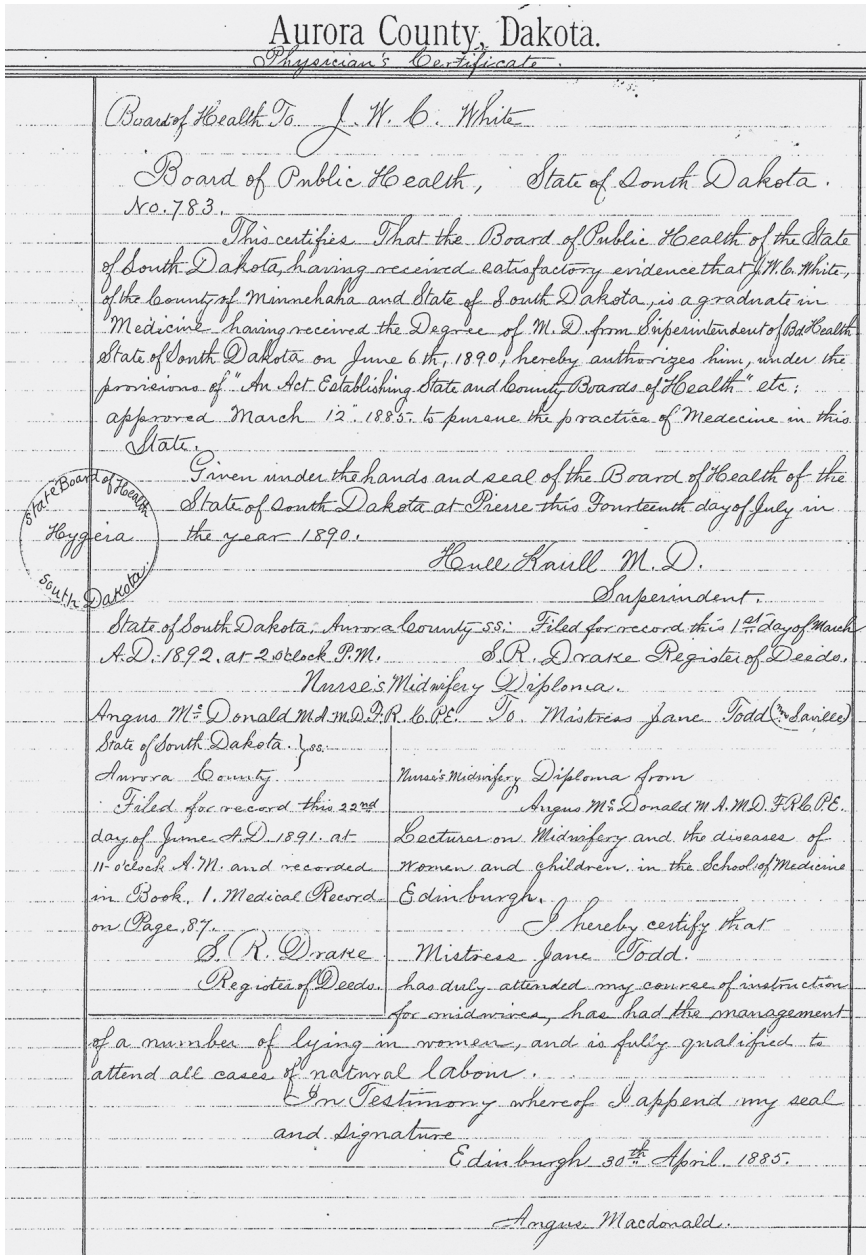 Aurora County, Dakota.
Physician's Certificate.
Board of Health To J. W. C. White
Board of Public Health, State of South Dakota.
No. 783.
This certifies That the Board of Public Health of the State
of South Dakota, having received satisfactory evidence that J. W. C. White,
of the County of Minnehaha and State of South Dakota, is a graduate in
Medicine having received the Degree of M. D. from Superintendent of Bd Health
State of South Dakota on June 6th, 1890, hereby authorizes him, under the
provisions of "An Act Establishing State and County Boards of Health" etc;
approved March 12" 1885. to pursue the practice of Medecine in this
State.
Given under the hands and seal of the Board of Health of the
State of South Dakota at Pierre this Fourteenth day of July in
the year 1890.
State Board of Health
Hygeia
South Dakota.
M. D.
Superindent.
State of South Dakota, Aurora County ss: Filed for record this 1st day of March
A.D. 1892. at 2 o'clock P.M. S. R. Drake Register of Deeds.
Nurse's Midwifery Diploma.
Angus Mc Donald M A. M.D. F. R. C. P. E. To Mistress Jane Todd (now Saville)
State of South Dakota. } ss:
Aurora County
Filed for record this 22nd
day of June A.D. 1891. at
11 o'clock A.M. and recorded
in Book 1. Medical Record
on Page 87.
S. R. Drake
Register of Deeds.
Nurse's Midwifery Diploma from
Angus Mc Donald M A. M D. F R C. P. E.
Lecturer on Midwifery and the diseases of
Women and children. in the School of Medicine
Edinburgh.
I hereby certify that
Mistress Jane Todd.
has duly attended my course of instruction
for midwives, has had the management
of a number of lying in women, and is fully qualified to
attend all cases of natural labour.
In Testimony whereof I append my seal
and signature
Edinburgh 30th April. 1885.
Angus Macdonald.